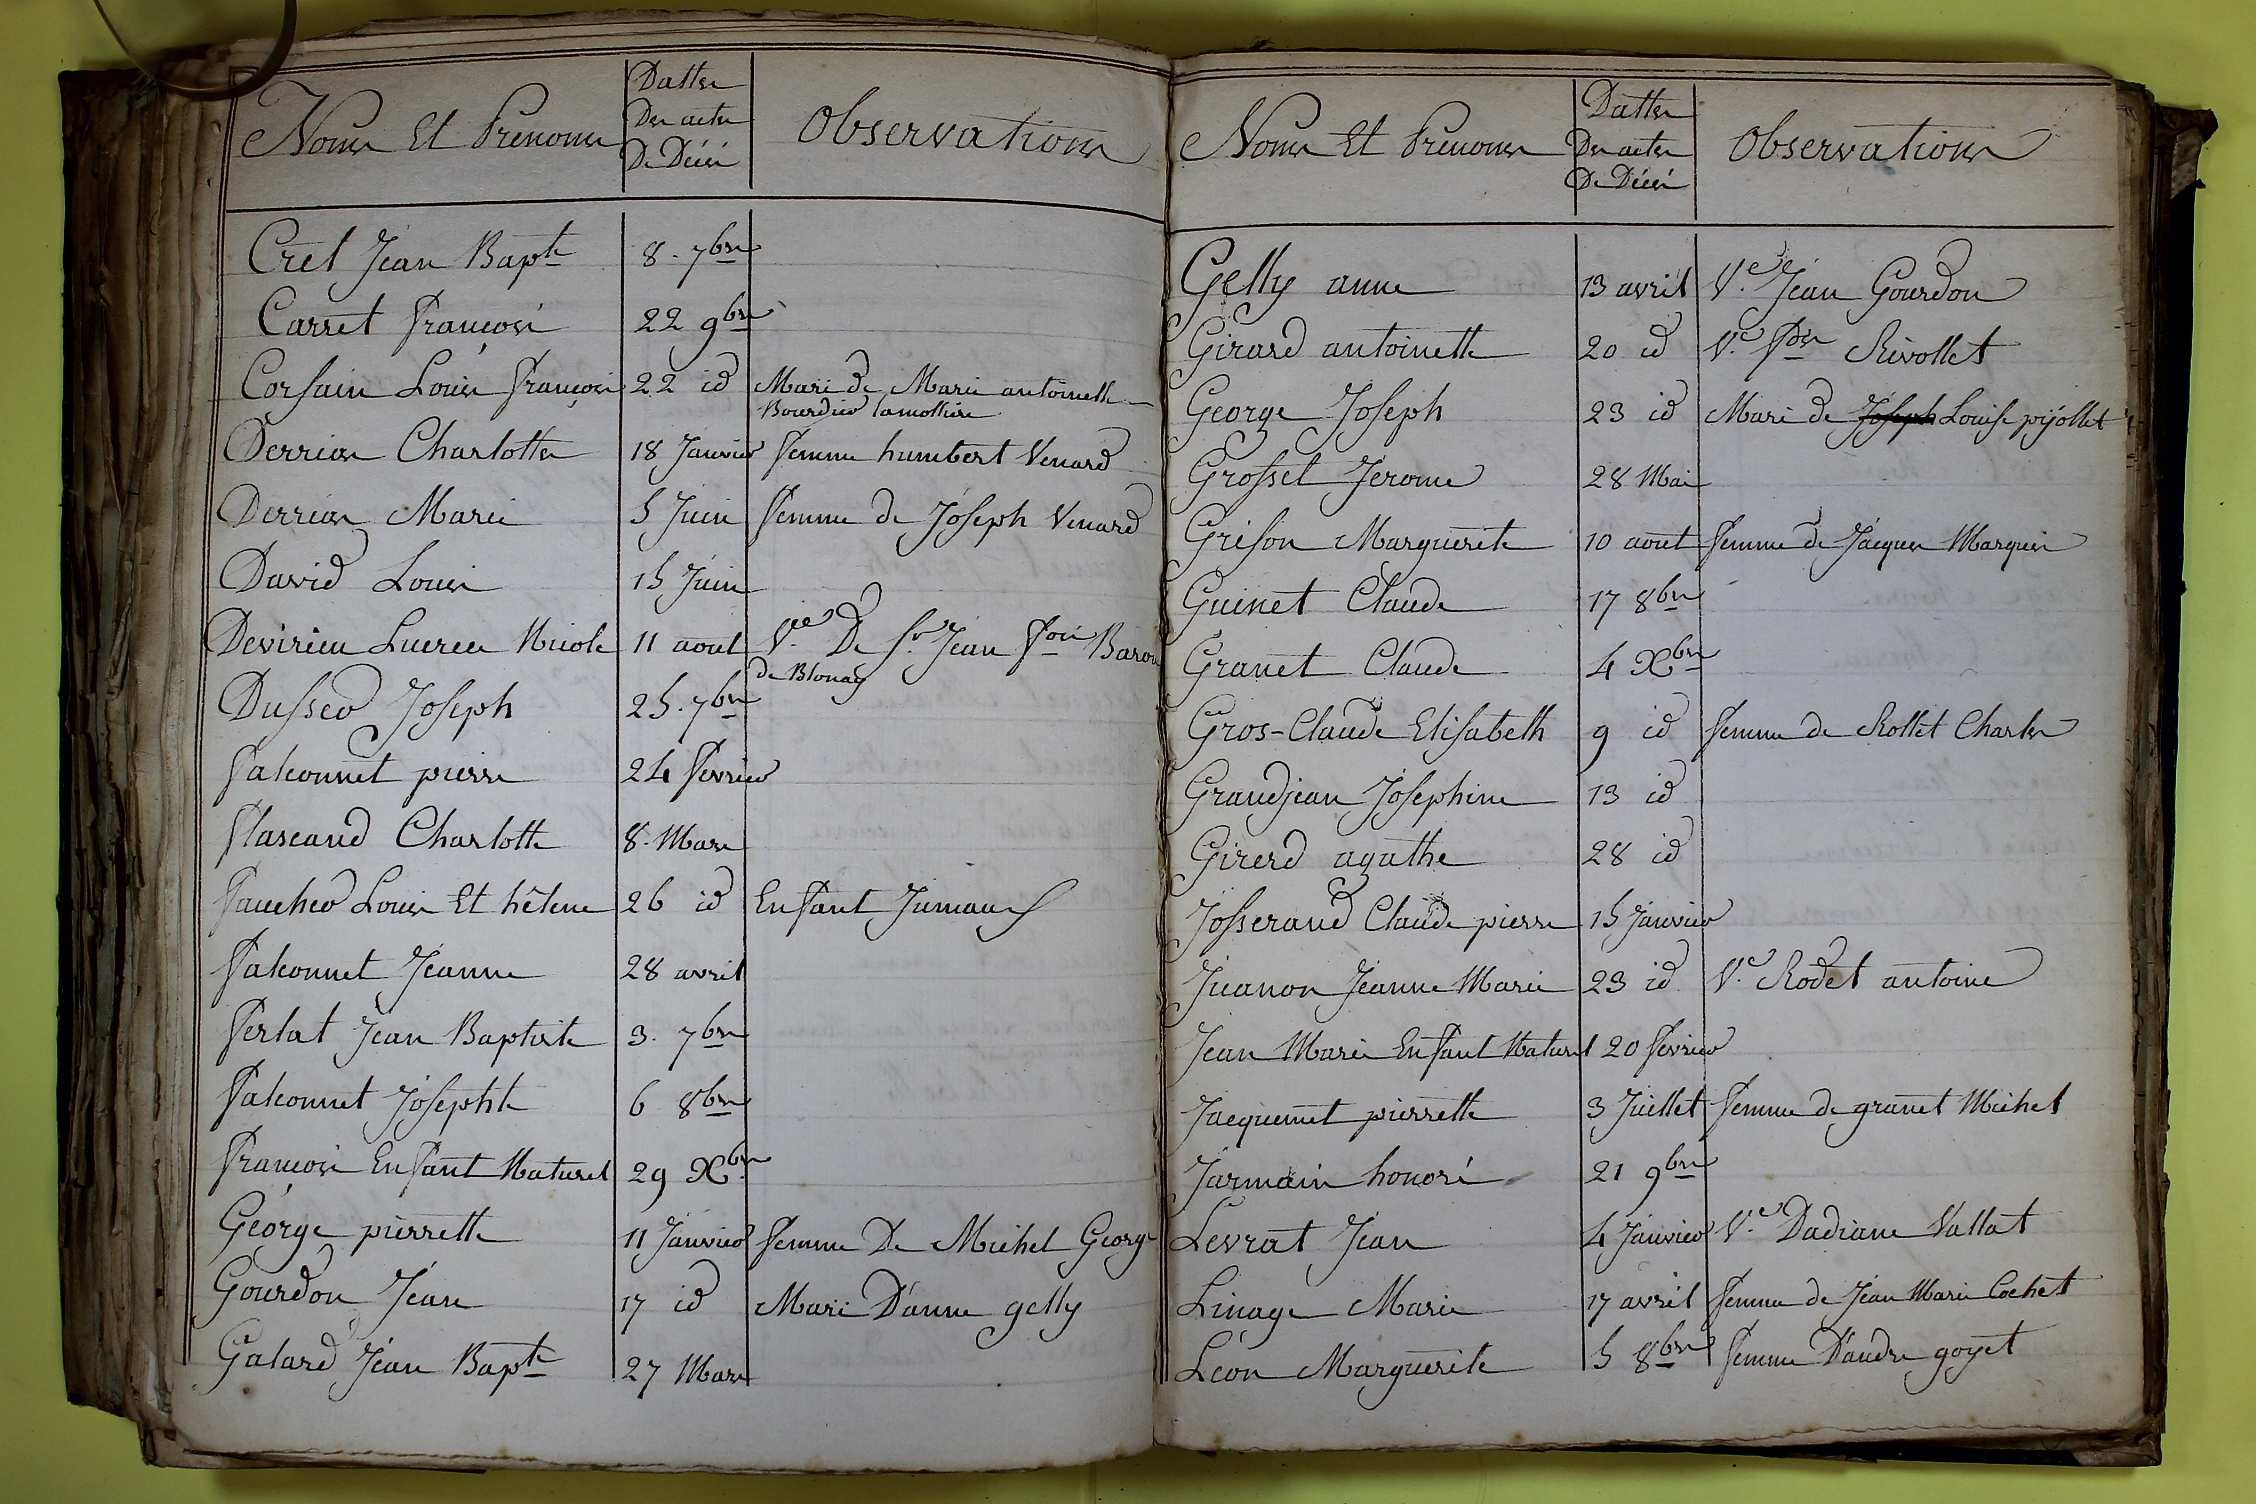 Noms Et Prenoms Dattes Des actes De Décès Observations
Cret Jean Bapte 8. 7bre
Carret François 22 9bre
Corsain Louis François 22 id Mari de Marie antoinette
Bourdier lamotliere
Derrias Charlotte 18 Janvier femme humbert Venard
Derrias Marie 5 Juin femme de Joseph Venard
David Louis 15 Juin
Devirieu Lucrece Nicole 11 aout Vee De Sr Jean fois Baron
de Blonay
Dusseo Joseph 25. 7bre
falconnet pierre 24 fevrier
flascaud Charlotte 8. Mars
faucher Louis Et hélene 26 id Enfant Jumaux
falconnet Jeanne 28 avril
ferlat Jean Baptiste 3. 7bre
falconnet Josephte 6 8bre
françois Enfant Naturel 29 Xbre
George pierrette 11 Janvier femme De Michel George
Gourdon Jean 17 id Mari D'anne gelly
Galard Jean Bapte 27 Mars
Noms Et Prenoms Dattes Des actes De Décès Observations
Gelly anne 13 avril Ve. Jean Gourdon
Girard antoinette 20 id Ve. fois Rivollet
George Joseph 23 id Mari de Joseph Louise pijollet
Grosset Jerome 28 Mai
Grison Marguerite 10 aout femme de Jacques Marquis
Guinet Claude 17 8bre
Granet Claude 4 Xbre
Gros-Claude Elisabeth 9 id femme de Rollet Charles
Grandjean Josephine 13 id
Girerd agathe 28 id
Josserand Claude pierre 15 Janvier
Juanon Jeanne Marie 23 id Ve. Rodet antoine
Jean Marie Enfant Naturel 20 fevrier
Jacquemet pierrette 3 Juillet femme de granet Michel
Jarmain honoré 21 9bre
Levrat Jean 4 Janvier Ve. Dadriane Vallat
Linage Marie 17 avril femme de Jean Marie Cochet
Léon Marguerite 5 8bre femme D'andre goyet